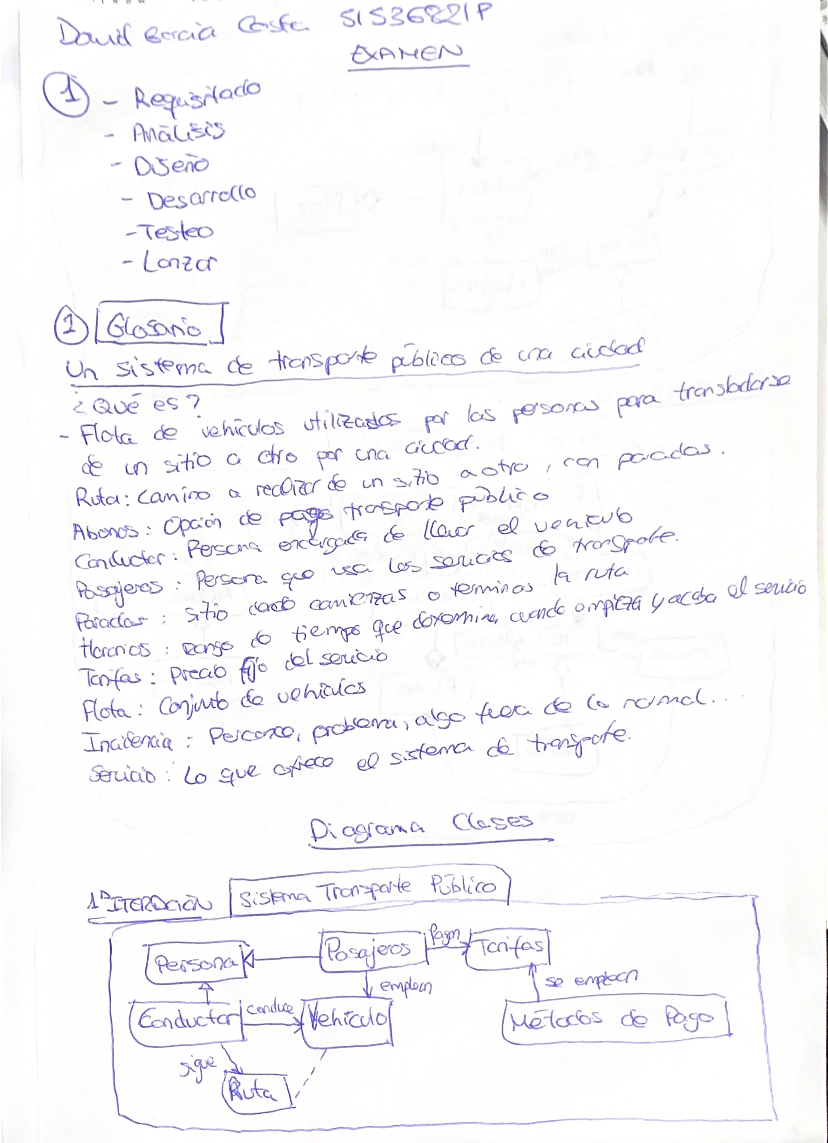 David García Costa 51536821P
EXAMEN
1 - Requisitado
- Análisis
- Diseño
- Desarrollo
- Testeo
- Lanzar
1 Glosario
Un sistema de transporte público de una ciudad
¿Qué es?
- Flota de vehículos utilizados por las personas para transladarse
de un sitio a otro por una ciudad.
Ruta: Camino a realizar de un sitio a otro, con paradas.
Abonos: Opción de pago transporte público
Conductor: Persona encargada de llevar el vehículo
Pasajeros: Persona que usa los servicios de transporte.
Paradas: sitio donde comienzas o terminas la ruta
Horarios: rango de tiempo que determina cuando empieza y acaba el servicio
Tarifas: precio fijo del servicio
Flota: Conjunto de vehículos
Incidencia: Percance, problema, algo fuera de lo normal...
Servicio: Lo que ofrece el sistema de transporte.
Diagrama Clases
1ª ITERACIÓN Sistema Transporte Público
Persona Pasajeros Pagan Tarifas
emplean se emplean
Conductor conduce Vehículo Métodos de Pago
sigue
Ruta